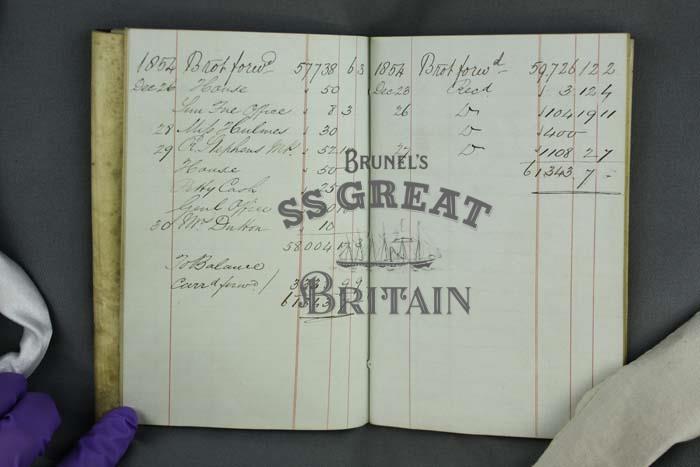 1854 Brot forwd 57,738 6 3
Dec 26 House " 50
Sun Fire Office " 8 3
28 Miss Hulmes " 30
29 R. Stephens " 52
House " 50
Petty Cash " 25
Office
30 Mrs Dutton " 10
58004 17 3
To Balance
carrd forwd
1854 Brot forwd 59,726 12 2
Dec 23 Recd " 3 12 4
26 Do 1104 19 11
Do 400
27 Do 1108 2 7
61343 7 -
BRUNEL'S
SS GREAT
BRITAIN